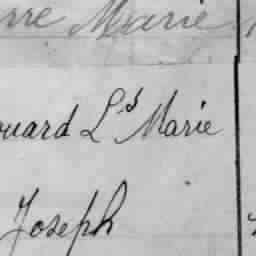 rre Marie
ouard Ls Marie
Joseph